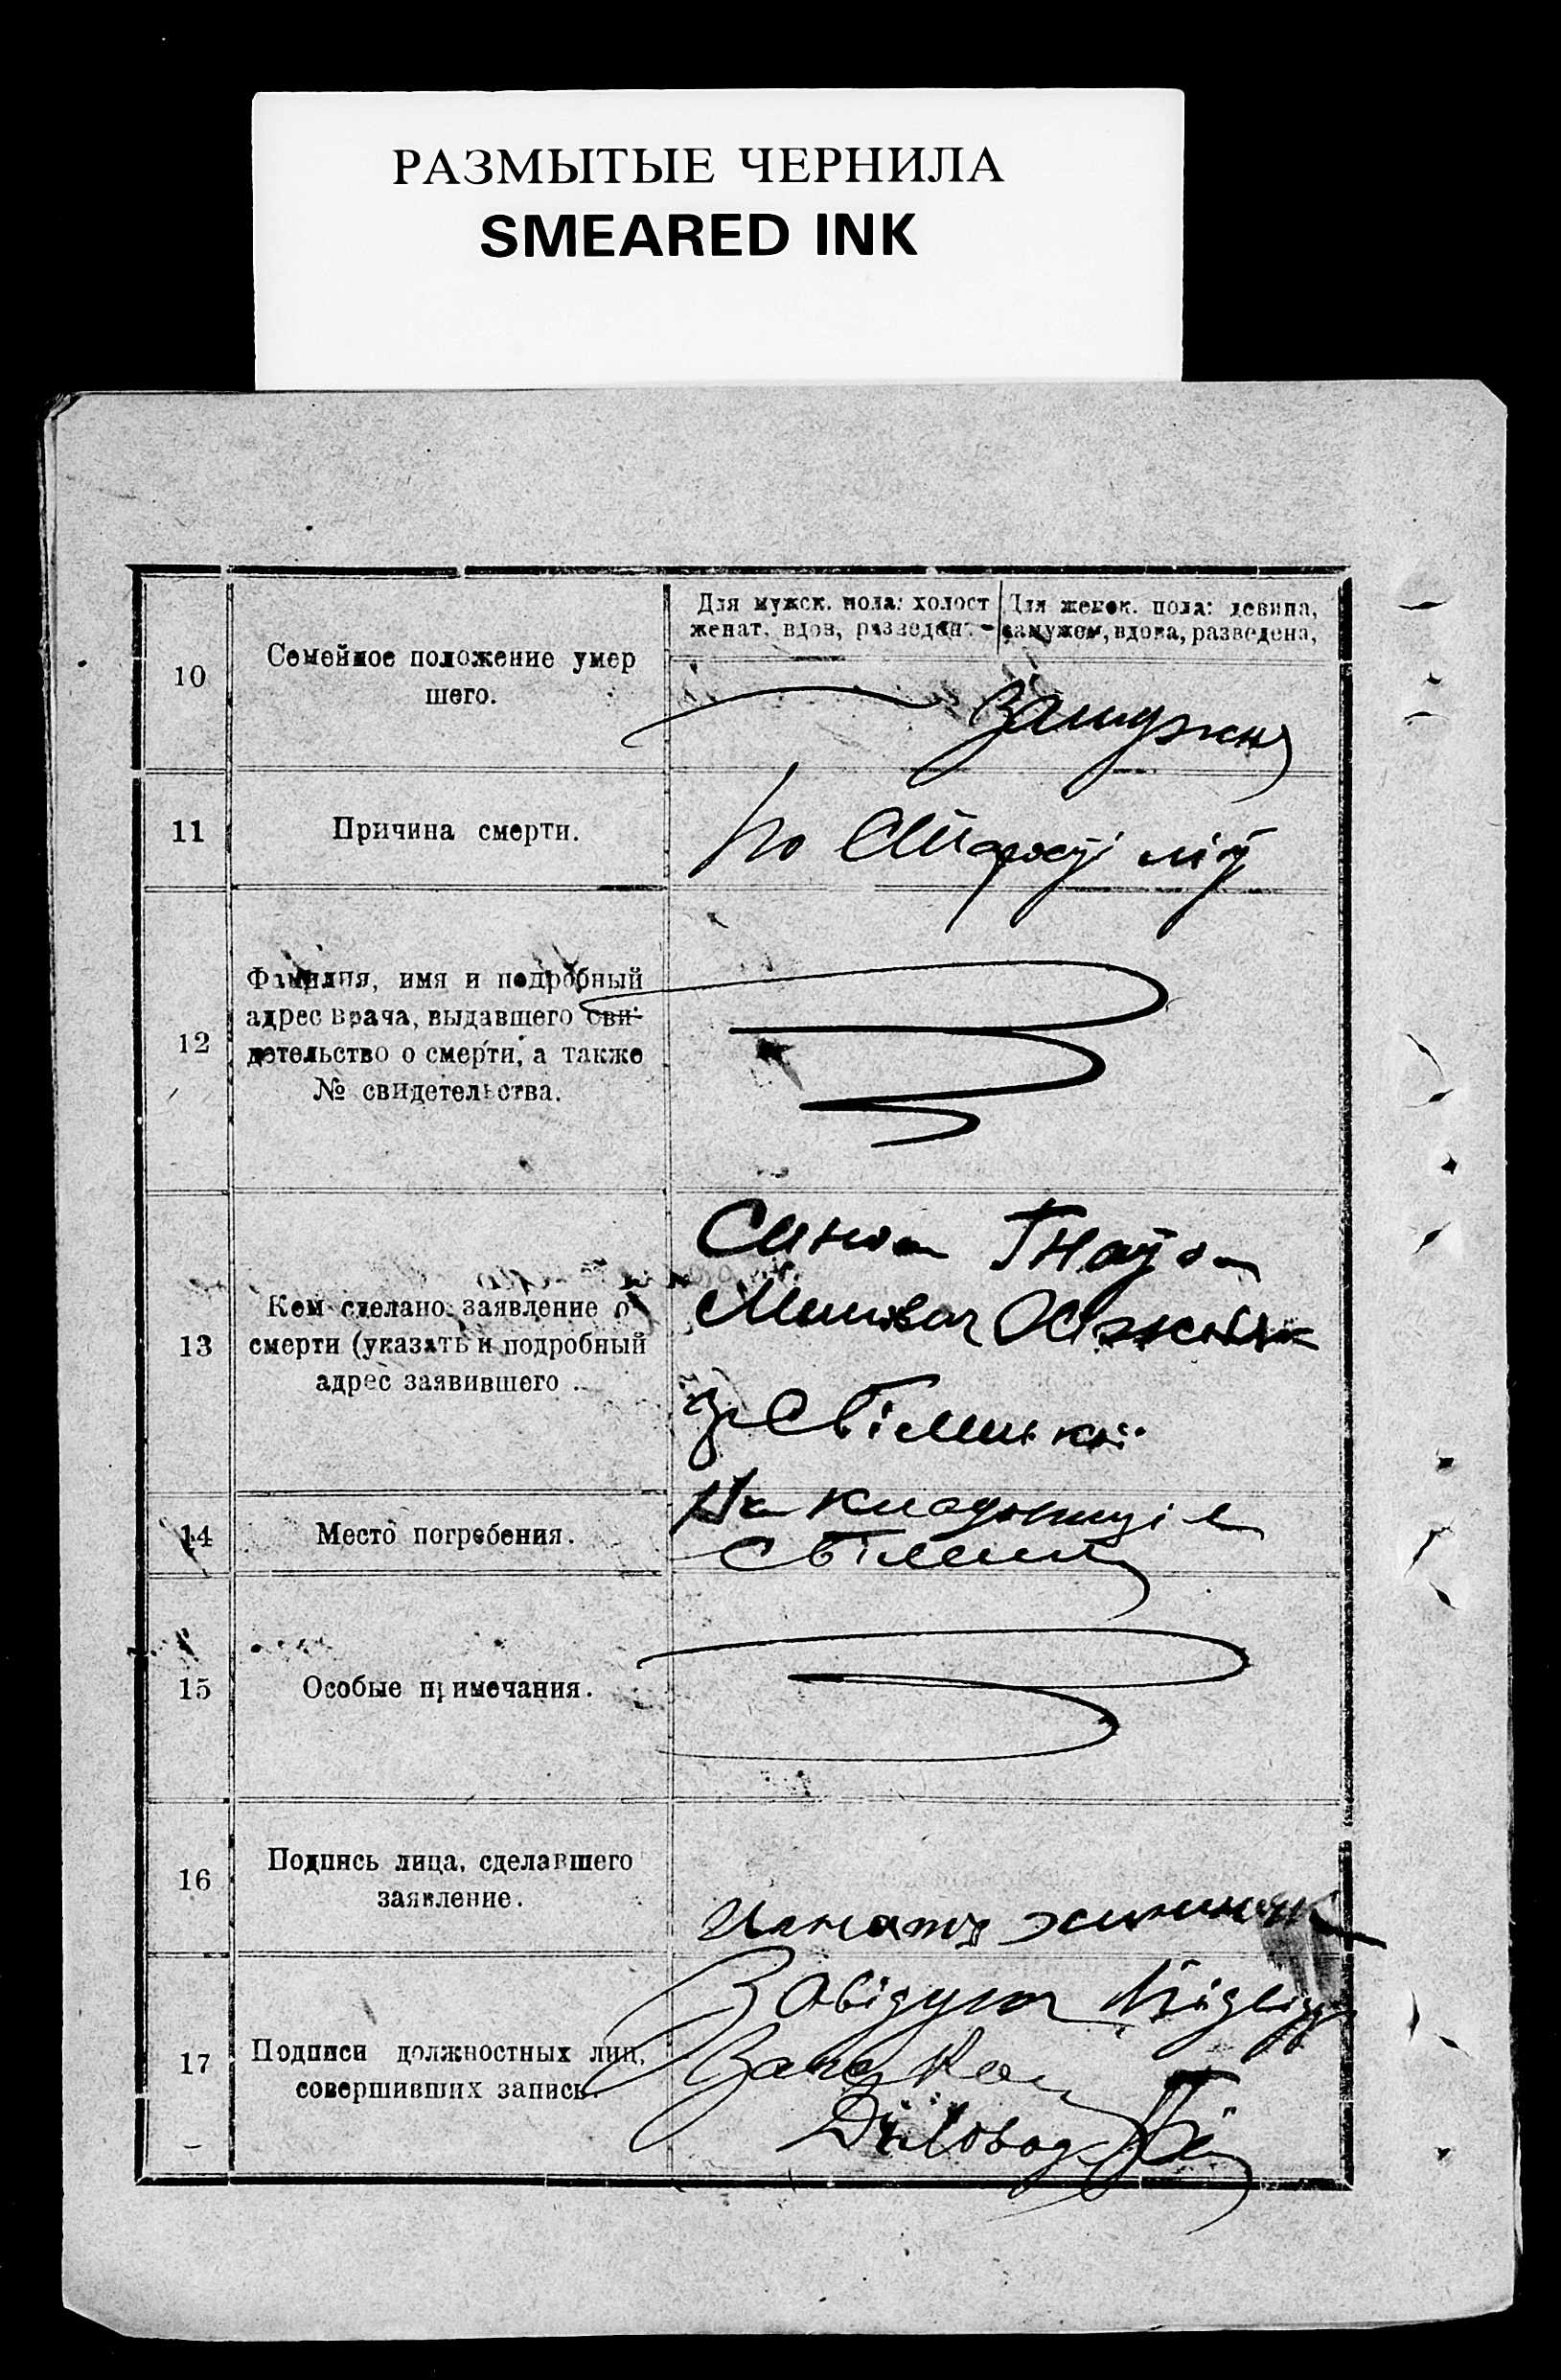 РАЗМЫТЫЕ ЧЕРНИЛА
SMEARED INK
10
Семейное положение умер
шего.
Для мужск. пола: холост
женат, вдов, разведен.
Для женск. пола: девица,
замужем, вдова, разведена,
Замужня
11
Причина смерти.
По старості літ
12
Фамилия, имя и подробный
адрес врача, выдавшего сви-
детельство о смерти, а также
№ свидетельства.
13
Кем сделано заявление о
смерти (указать и подробный
адрес заявившего
Сином Гнатом
з С
14
Место погребения.
На кладовищі в
с
15
Особые примечания.
16
Подпись лица, сделавшего
заявление.
17
Подписи должностных лиц,
совершивших запись.
Завідуюч
Діловод